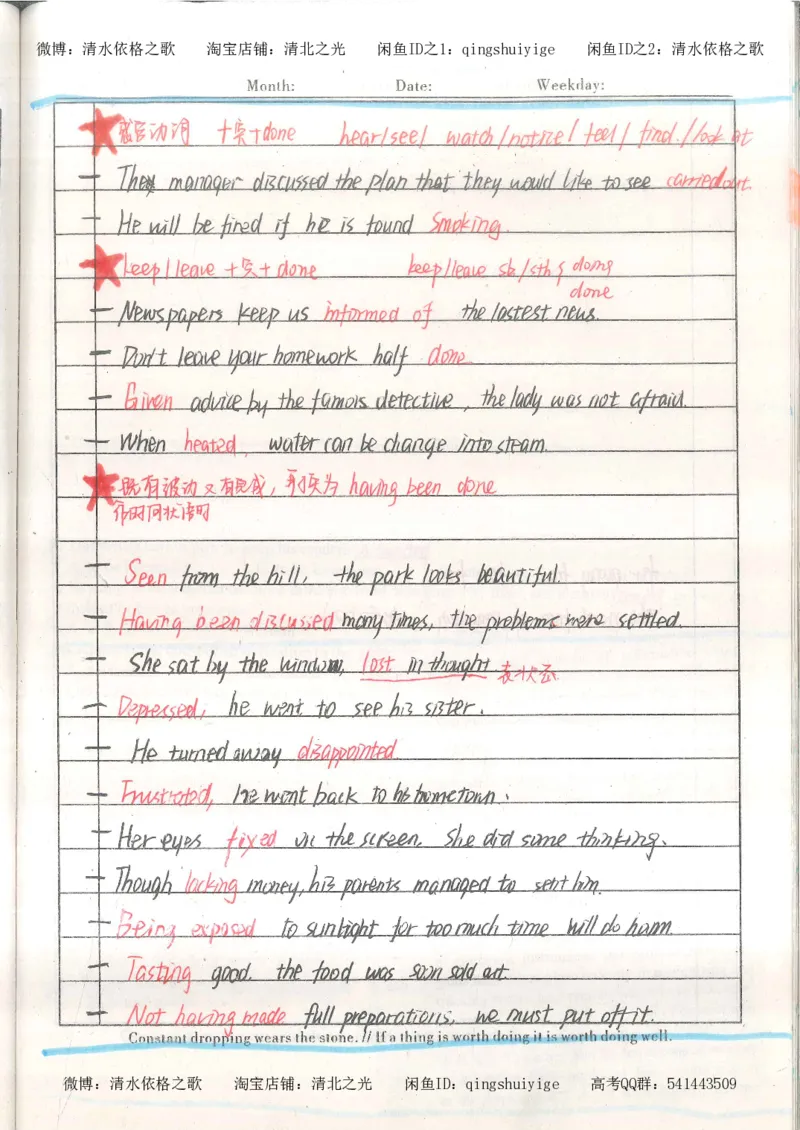 微博：清水依格之歌 淘宝店铺：清北之光 闲鱼ID之1：qingshuiyige 闲鱼ID之2：清水依格之歌
Month: Date: Weekday:
感官动词 +宾+done hear/see/ watch/notice/ feel/ find./look at
The manager discussed the plan that they would like to see carried out.
He will be fired if he is found smoking.
keep/leave +宾+done keep/leave sb/sth { doing
done
Newspapers keep us informed of the lastest news.
Don't leave your homework half done
Given advice by the famois detective, the lady was not afraid.
When heated, water can be change into steam.
既有被动又有完成，则须为 having been done
作时间状语时
Seen from the hill, the park looks beautiful.
Having been discussed many times, the problems were settled.
She sat by the window, lost in thought 表状态
Depressed, he went to see his sister.
He turned away disappointed
Frustrated, he went back to his hometown.
Her eyes fixed on the screen. She did some thinking.
Though lacking money, his parents managed to sent him.
Being exposed to sunlight for too much time will do harm.
Tasting good. the food was soon sold out.
Not having made full preparations, we must put off it.
Constant dropping wears the stone. // If a thing is worth doing it is worth doing well.
微博：清水依格之歌 淘宝店铺：清北之光 闲鱼ID：qingshuiyige 高考QQ群：541443509